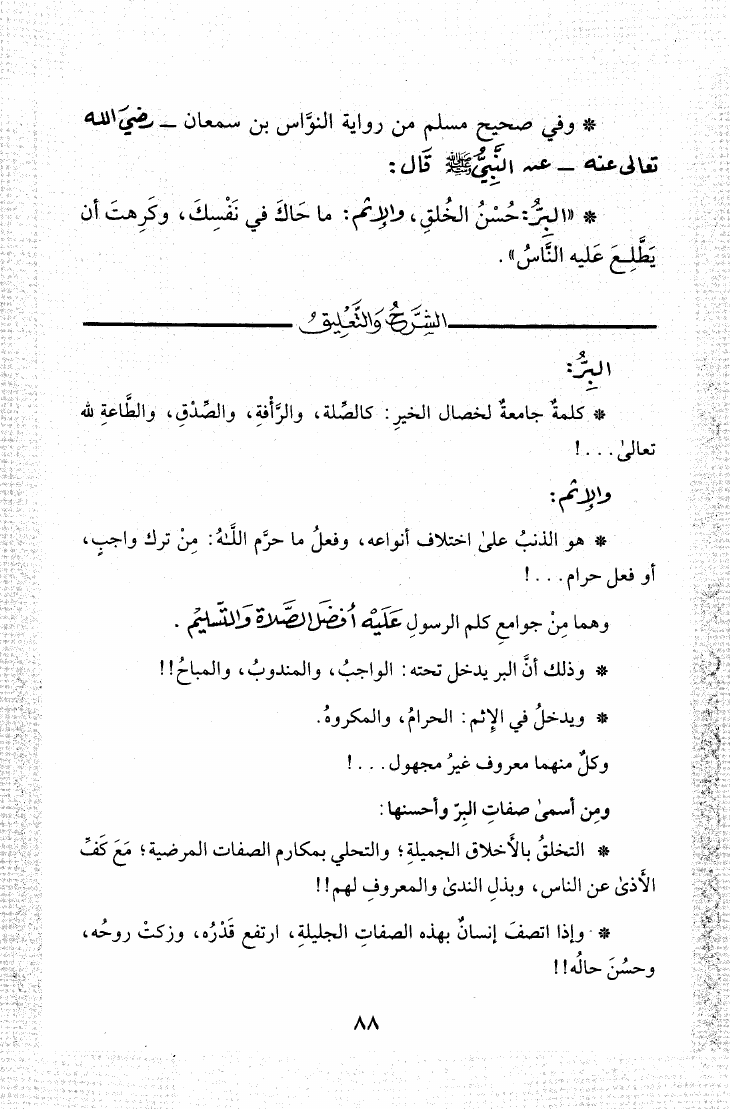 * وفي صحيح مسلم من رواية النوَّاس بن سمعان ـ رضيَ الله
تعالى عنه ـ عن النَّبِيُّ ﷺ قَال:
* «البِرُّ: حُسْنُ الخُلقِ، والإِثم: ما حَاكَ في نَفْسِكَ، وكَرِهتَ أن
يَطَّلِعَ عَليه النَّاسُ».
الشَّرْحُ وَالتَّعْلِيقُ
البِرُّ:
* كلمةٌ جامعةٌ لخصال الخيرِ: كالصِّلة، والرَّأْفةِ، والصِّدْقِ، والطَّاعةِ لله
تعالىٰ...!
والإِثم:
* هو الذنبُ علىٰ اختلاف أنواعه، وفعلُ ما حرَّم اللَّهُ: مِنْ ترك واجبٍ،
أو فعل حرام...!
وهما مِنْ جوامعِ كلم الرسولِ عَلَيْه أفضَل الصَّلاة وَالتَّسليم.
* وذلك أنَّ البر يدخل تحته: الواجبُ، والمندوبُ، والمباحُ!!
* ويدخلُ في الإثم: الحرامُ، والمكروهُ.
وكلٌ منهما معروف غيرُ مجهول...!
ومِن أسمىٰ صفاتِ البِرّ وأحسنها:
* التخلقُ بالأَخلاق الجميلةِ؛ والتحلي بمكارم الصفات المرضية؛ مَعَ كَفِّ
الأَذىٰ عن الناس، وبذلِ الندىٰ والمعروفِ لهم!!
* وإذا اتصفَ إنسانٌ بهذه الصفاتِ الجليلةِ، ارتفع قَدْرُه، وزكتْ روحُه،
وحسُنَ حالُه!!
٨٨